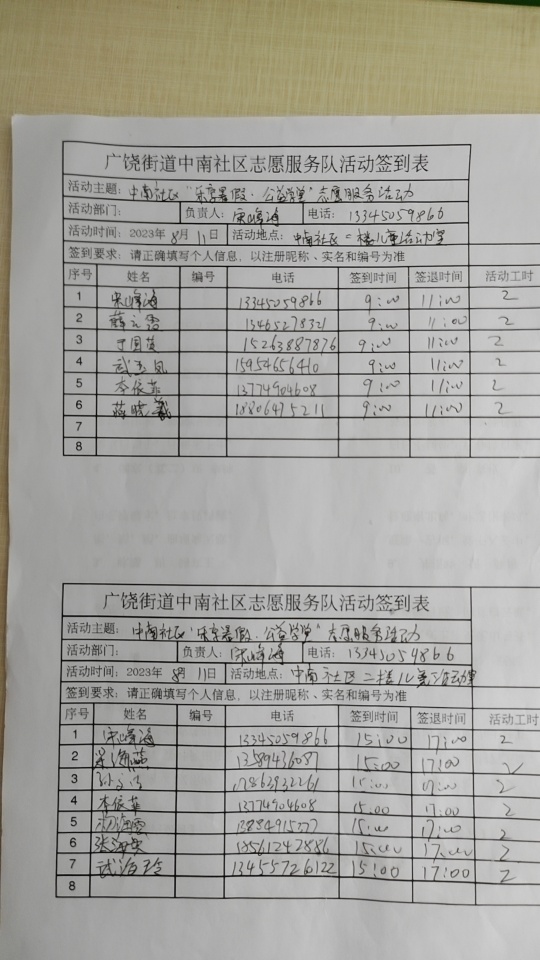 广饶街道中南社区志愿服务队活动签到表
活动主题：中南社区“乐享暑假·公益学堂”志愿服务活动
活动部门： 负责人：宋峰海 电话：13345059866
活动时间：2023年8月11日 活动地点：中南社区二楼儿童活动室
签到要求：请正确填写个人信息，以注册昵称、实名和编号为准
序号 姓名 编号 电话 签到时间 签退时间 活动工时
1 宋峰海 13345059866 9:00 11:00 2
2 薛元霞 13465278321 9:00 11:00 2
3 于国英 15263887876 9:00 11:00 2
4 武玉凤 15954656410 9:00 11:00 2
5 李依華 13774904608 9:00 11:00 2
6 蒋晓 18806475211 9:00 11:00 2
7
8
广饶街道中南社区志愿服务队活动签到表
活动主题：中南社区“乐享暑假·公益学堂”志愿服务活动
活动部门： 负责人：宋峰海 电话：13345059866
活动时间：2023年8月11日 活动地点：中南社区二楼儿童活动室
签到要求：请正确填写个人信息，以注册昵称、实名和编号为准
序号 姓名 编号 电话 签到时间 签退时间 活动工时
1 宋峰海 13345059866 15:00 17:00 2
2 梁海燕 13589436087 15:00 17:00 2
3 17863932261 15:00 17:00 2
4 李依華 13774904608 15:00 17:00 2
5 海霞 15:00 17:00 2
6 张海英 13561247886 15:00 17:00 2
7 武海玲 13455726122 15:00 17:00 2
8